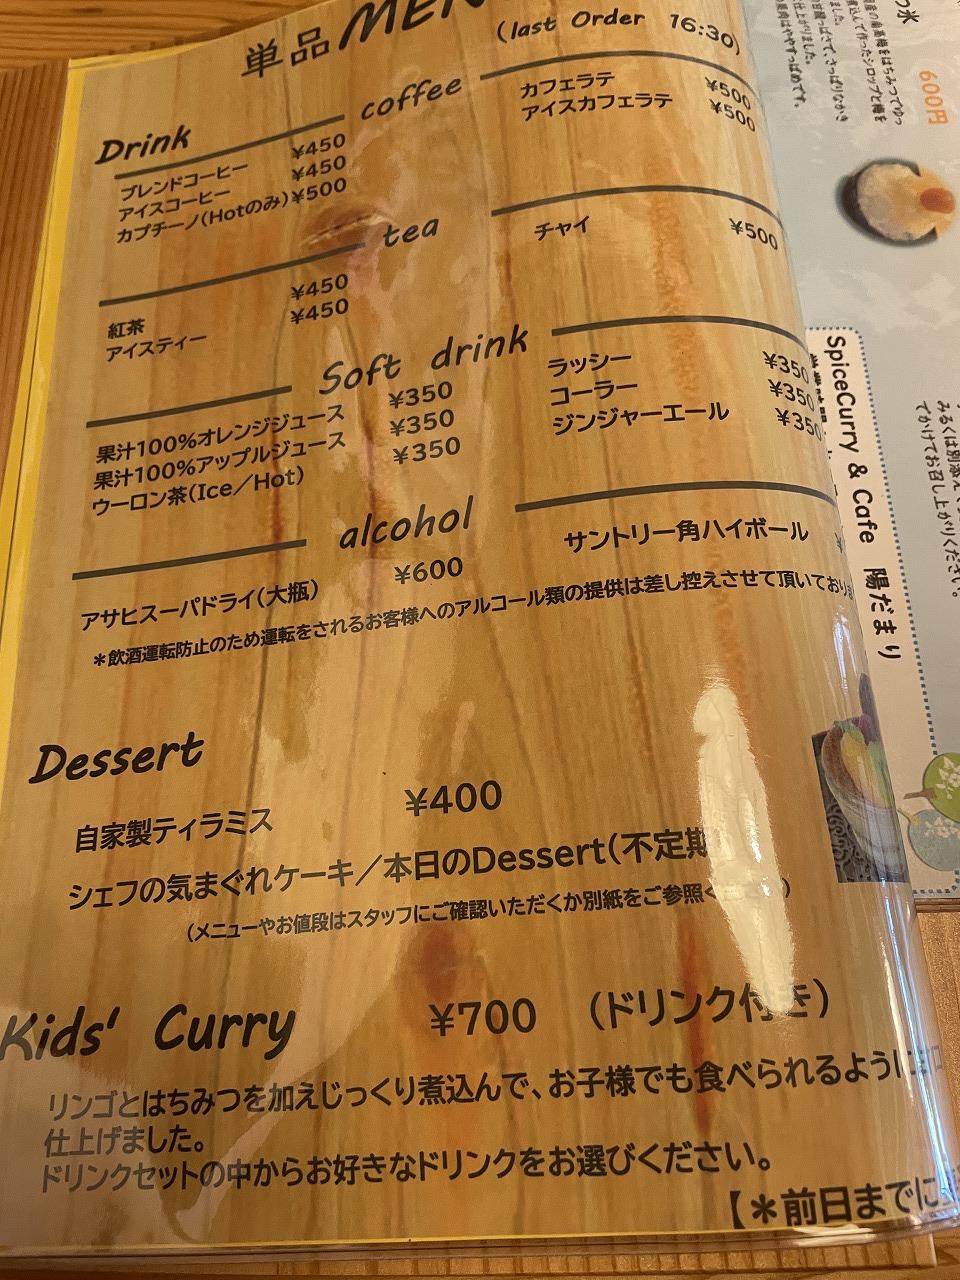 単品MEN
(last Order 16:30)
Drink
coffee
ブレンドコーヒー ¥450
アイスコーヒー ¥450
カプチーノ(Hotのみ) ¥500
カフェラテ ¥500
アイスカフェラテ ¥500
tea
紅茶 ¥450
アイスティー ¥450
チャイ ¥500
Soft drink
果汁100%オレンジジュース ¥350
果汁100%アップルジュース ¥350
ウーロン茶(Ice/Hot) ¥350
ラッシー ¥350
コーラー ¥350
ジンジャーエール ¥350
alcohol
アサヒスーパドライ(大瓶) ¥600
サントリー角ハイボール
*飲酒運転防止のため運転をされるお客様へのアルコール類の提供は差し控えさせて頂いており
Dessert
自家製ティラミス ¥400
シェフの気まぐれケーキ/本日のDessert(不定期
(メニューやお値段はスタッフにご確認いただくか別紙をご参照く
Kids' Curry ¥700 (ドリンク付き)
リンゴとはちみつを加えじっくり煮込んで、お子様でも食べられるように
仕上げました。
ドリンクセットの中からお好きなドリンクをお選びください。
【*前日までに
600円
SpiceCurry & Cafe 陽だまり
でかけてお召し上がりください。